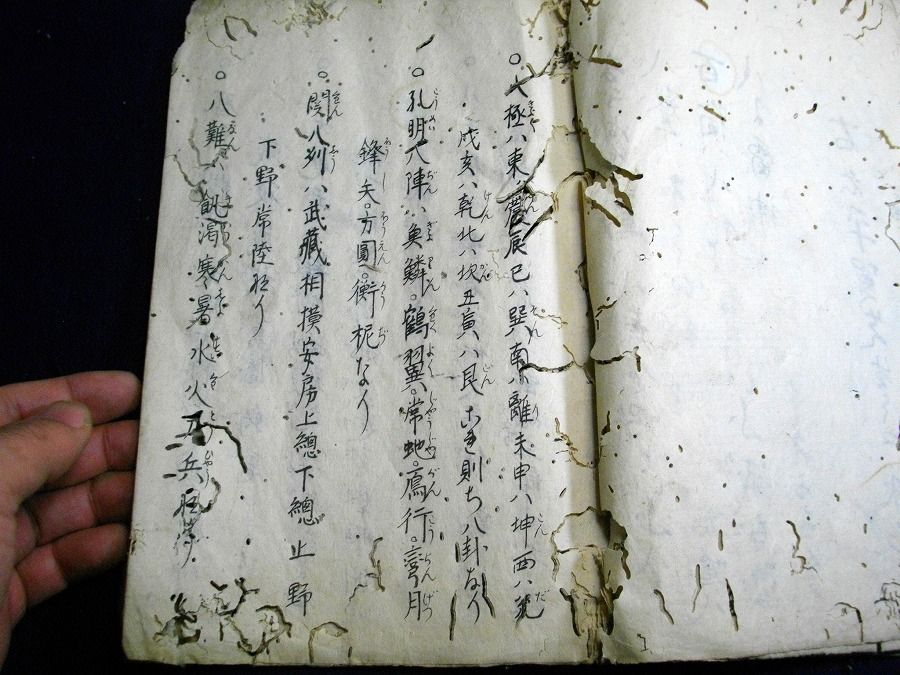 ○八極ハ東ハ震辰巳ハ巽南ハ離未申ハ坤西ハ兌
戌亥ハ乾北ハ坎丑寅ハ艮これ則ち八卦なり
○孔明八陣ハ魚鱗。鶴翼。常虵。鴈行。彎月
鋒矢。方圓。衡枙なり
○関八列ハ武藏相摸安房上總下總上野
下野常陸なり
○八難ハ飢渇寒暑水火刀兵